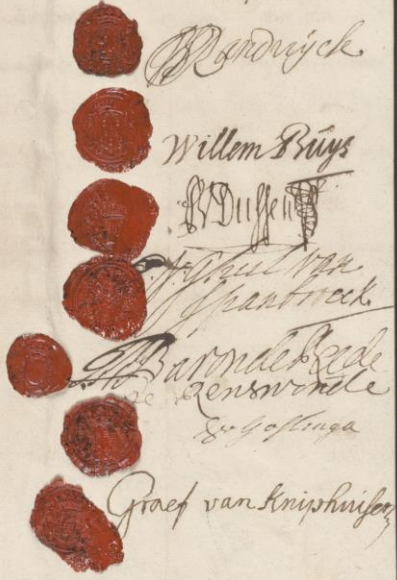 Randwyck
Willem Buys
BV Dussen
J. Gheel van
Spanbroeck
Baron de Reede
de Renswoude
S. v. Goslinga
Graef van Kniphuisen